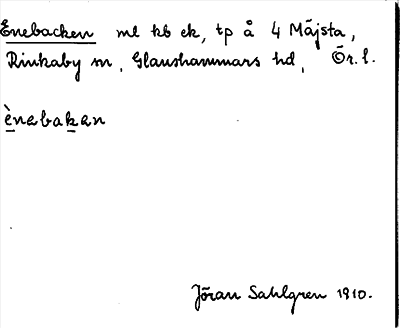 Enebacken ml kb ek, tp å 4 Mäjsta,
Rinkaby sn, Glanshammars hd, Ör. l.
ènabakan
Jöran Sahlgren 1910.